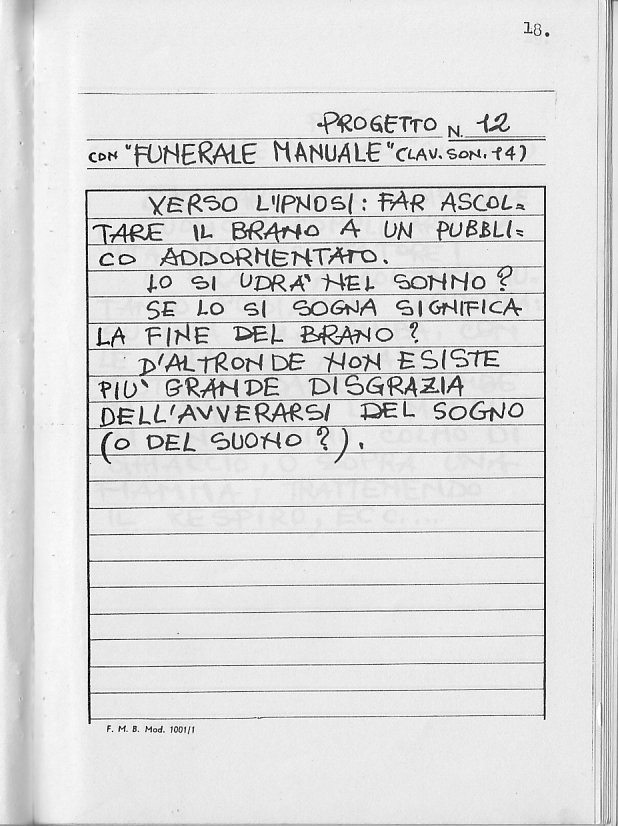 18.
PROGETTO N. 12
CON "FUNERALE MANUALE" (CLAV. SON. 14)
VERSO L'IPNOSI: FAR ASCOL=
TARE IL BRANO A UN PUBBLI=
CO ADDORMENTATO.
LO SI UDRA' NEL SONNO?
SE LO SI SOGNA SIGNIFICA
LA FINE DEL BRANO?
D'ALTRONDE NON ESISTE
PIU' GRANDE DISGRAZIA
DELL'AVVERARSI DEL SOGNO
(O DEL SUONO?).
F. M. B. Mod. 1001/1